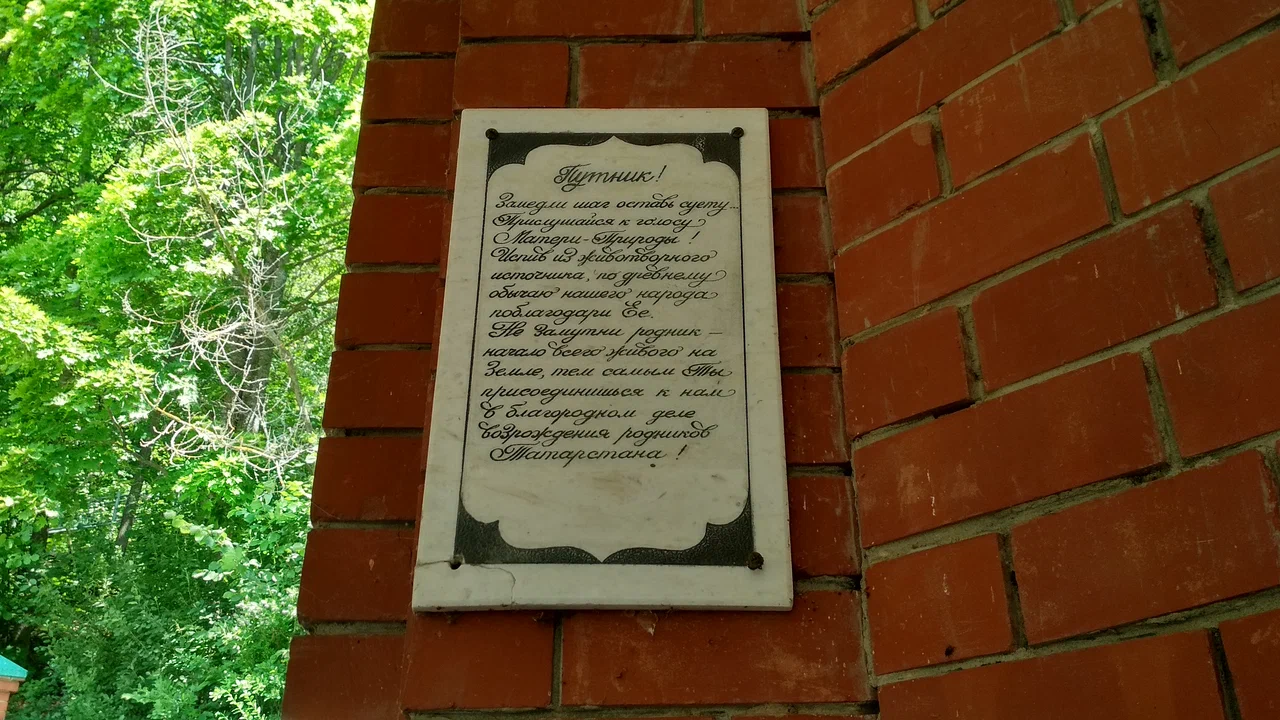 Путник!
Замедли шаг оставь суету...
Прислушайся к голосу
Матери-Природы !
Испив из животворного
источника, по древнему
обычаю нашего народа
поблагодари Ее.
Не замутни родник —
начало всего живого на
Земле, тем самым Ты
присоединишься к нам
в благородном деле
возрождения родников
Татарстана !